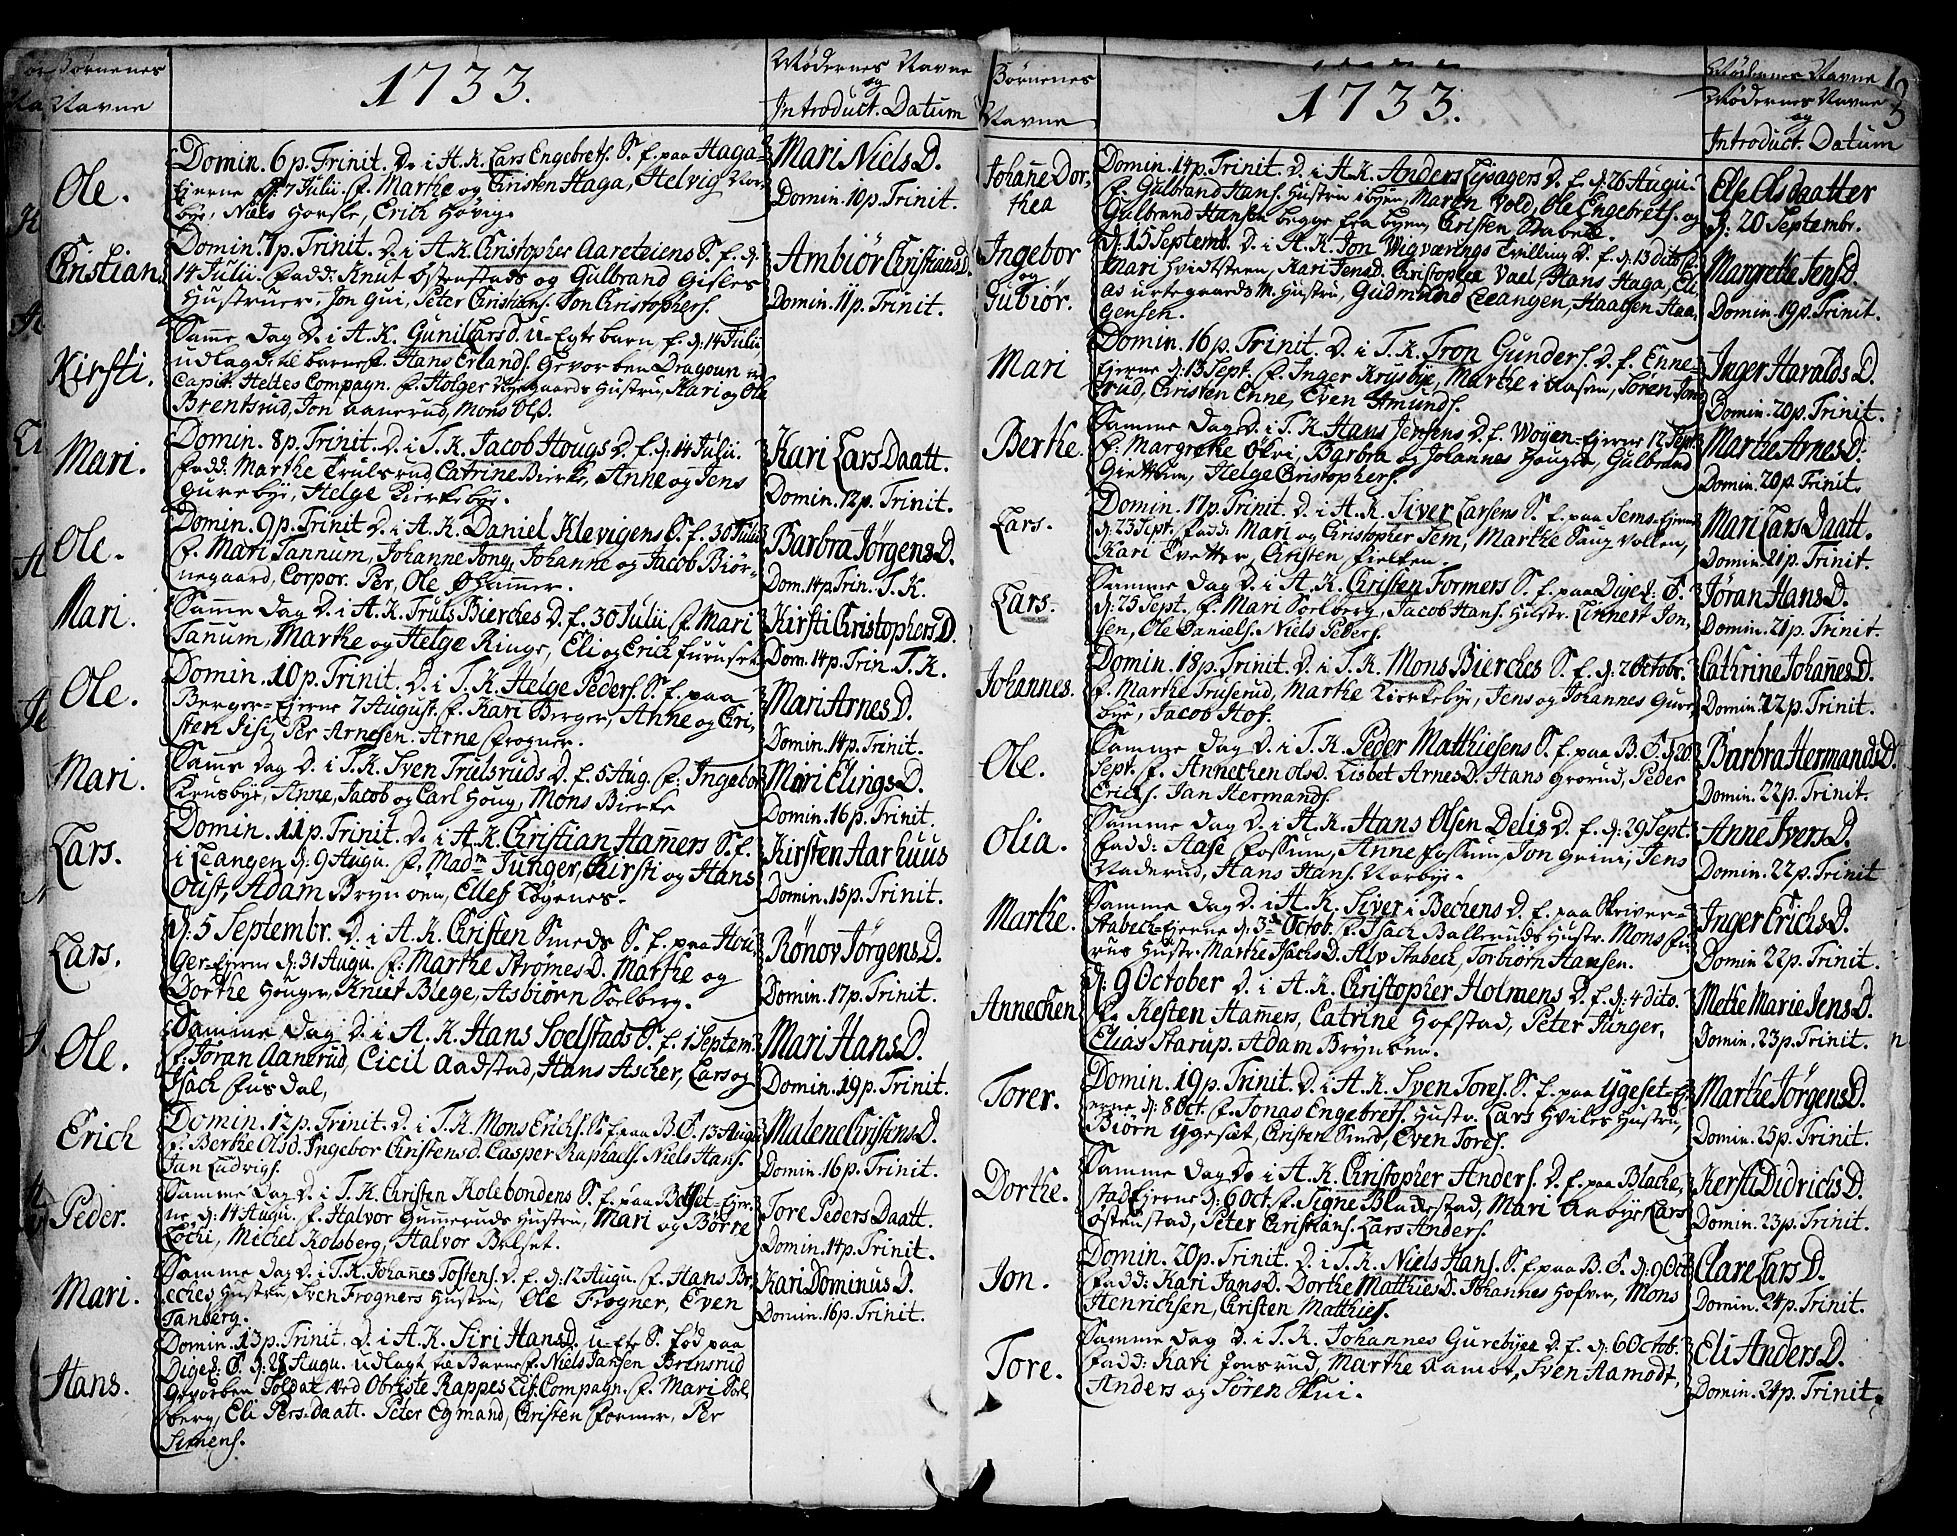 Børnenes
Navne
1733.
Mødernes Navne
og
Introduct. Datum
Ole.
Domin. 6 p. Trinit. D. i A. K. Lars Engebrets. S. f. paa Haga-
Ejerne d: 7 Julii. f. Marthe og Christen Haga, Helvig Nor-
bye, Niels Horsle, Erich Høvig.
Mari Niels D.
Domin. 10 p. Trinit.
Christian.
Domin. 7 p. Trinit. D. i A. K. Christopher Aareteiens S. f. d:
14 Julii. Fadd: Knut Østenstads og Gulbrand Gisles
Hustruer, Jon Gui, Peter Christians. Jon Christophers.
Ambiør Christians D.
Domin. 11 p. Trinit.
Kirsti.
Samme Dag D. i A. K. Gunil Lars D. u Egte barn, f. d: 14 Julii
udlagde til barnef. Hans Erlands. Gevorben Dragoun ved
Capit. Heltes Compagn. f. Holger Hustru, Kari og Ole
Brentsrud, Jon Aanerud, Mons Ols.
Mari.
Domin. 8 p. Trinit. D. i T. K. Jacob Hougs D. f. d: 14 Julii.
Fadd: Marthe Trulsrud, Catrine Bierke, Anne og Jens
Gurebye, Helge Kierkebye.
Kari Lars Daatt.
Domin. 12 p. Trinit.
Ole.
Domin. 9 p. Trinit D. i A. K. Daniel Klevigens S. f. 30 Julii
f. Mari Tannum, Johanne Jong, Johanne og Jacob Biør-
negaard, Corpor. Per, Ole Øhammer.
Barbra Jørgens D.
Dom. 14 p. Trin. T. K.
Mari.
Samme Dag D. i A. K. Truls Bierches D. f. 30 Julii f. Mari
Tanum, Marthe og Helge Ringe, Eli og Erich Furuset
Kirsti Christophers D.
Dom. 14 p. Trin. T. K.
Ole.
Domin. 10 p. Trinit. D. i T. K. Helge Peders. S. f. paa
Berger-Ejerne 7 August. f. Kari Berger, Anne og Chri-
sten Isi, Per Arnesen. Arne Frogner.
Mari Arnes D.
Domin. 14 p. Trinit.
Mari.
Samme Dag D. i T. K. Sven Trulsruds D. f. 5 Aug. f. Ingebor
Krusbye, Anne, Jacob og Carl Houg, Mons Bierke
Mari Elings D.
Domin. 16 p. Trinit.
Lars.
Domin. 11 p. Trinit. D. i A. K. Christian Hammers S. f.
i Leangen d: 9 Augu. f. Madm Junger, Kirsti og Hans
Oust, Adam Brynoen, Ellef Løgenes.
Kirsten Aarhuus
Domin. 15 p. Trinit.
Lars.
d: 5 Septembr. D. i A. K. Christen Smeds S. f. paa Hou-
ger-Ejerne d: 31 Augu. f: Marthe Strømes D. Marthe og
Dorthe Houger, Knut Blege, Asbiørn Solberg.
Rønov Jørgens D.
Domin. 17 p. Trinit.
Ole.
Samme Dag D. i A. K. Hans Soelstads S. f. 1 Septem.
f: Jøran Aanerud, Cicil Aadstad, Hans Ascher, Lars og
Isach Fusdal,
Mari Hans D.
Domin. 19 p. Trinit.
Erich
Domin. 12 p. Trinit. D. i T. K. Mons Erichs. S. f. paa B. S. 13 Augu
f. Berthe Ols D. Ingebor Christens d. Casper Raphaels. Niels Hans.
Jan Ludvigs.
Malene Christens D.
Domin. 16 p. Trinit.
Peder.
Samme Dag D. i T. K. Christen Kolebondens S. f. paa Belset-Ejer-
ne d: 14 Augu. f. Halvor Gummeruds Hustru, Mari og Børre
Løchi, Michel Kolsberg, Halvor Belset.
Tore Peders Daatt.
Domin. 14 p. Trinit.
Mari.
Samme Dag D. i T. K. Johannes Tostens. D. f. d: 12 Augu. f. Hans Br-
eches Hustru, Sven Frogners Hustru, Ole Frogner, Even
Tanberg.
Kari Dominus D.
Domin. 16 p. Trinit.
Hans.
Domin. 13 p. Trinit. D. i A. K. Siri Hans D. u-Ete S. fød paa
Diget: S. d: 28 Augu. udlagt til Barnef. Niels Jansen Brensrud
Gevorben Soldat ved Obriste Rappes Lif. Compagn. f. Mari Sol-
berg, Eli Pers-daatt. Peter Egmand, Christen Former, Per
Simens.
Børnenes
Navne
1733.
Mødernes Navne
Mødernes Navne
og
Introduct. Datum
Johanne Dor-
thea
Domin. 14 p. Trinit. D. i A. K. Anders Lysagers D. f. d: 26 Augu.
f. Gulbrand Hans. Hustru i byen, Maren Vold, Ole Engebrets. og
Gulbrand Hansen begge fra byen, Christen Stabek.
Else Olsdaatter
d: 20 Septembr.
Ingebor
og
Gubiør.
d: 15 Septemb. D. i A. K. Jon Wigværings Tvilling D. f. d: 13 dito f.
Mari Hvidtsteen, Kari Jens D. Christopher Vael, Hans Haga, Eli-
as urtegaards M. Hustru, Gudmund Leangen, Haagen Haa-
gensen.
Margrethe Jens D.
Domin. 19 p. Trinit.
Mari
Domin. 16 p. Trinit. D. i T. K. Tron Gunders. D. f. Enne-
Ejerne d: 13 Sept. f. Inger Krusbye, Marthe i Aasen, Søren Jons
rud, Christen Enne, Even Amunds.
Inger Haralds D.
Domin. 20 p. Trinit.
Berthe.
Samme Dag D. i T. K. Hans Jensens D. f. Woyen-Ejerne 12 Sept
f: Margrethe Økri, Barbra og Johannes Houger, Gulbrand
Grettum, Helge Christophers.
Marthe Arnes D:
Domin. 20 p. Trinit.
Lars.
Domin. 17 p. Trinit. D. i A. K. Siver Larsens S. f. paa Sems-Ejerne
d: 23 Sept. Fadd: Mari og Christopher Sem, Marthe Saug Vollen,
Kari Tvetter, Christen Fielken.
Mari Lars Daatt.
Domin. 21 p. Trinit.
Lars.
Samme Dag D. i A. K. Christen Formers S. f. paa Diget: S.
d: 23 Sept. f. Mari Solberg, Jacob Hans. Hustr. Lennert Jon-
sen, Ole Daniels. Niels Peders.
Jøran Hans D.
Domin. 21 p. Trinit.
Johannes.
Domin. 18 p. Trinit. D. i T. K. Mons Bierches S. f. d: 2 Octobr.
f. Marthe Truserud, Marthe Kierkebye, Jens og Johannes Gure-
bye, Jacob Hof.
Cathrine Johannes D.
Domin. 22 p. Trinit.
Ole.
Samme Dag D. i T. K. Peder Matthiesens S. f. paa B. S. d: 20
Sept. f. Annechen Ols D. Lisbet Arnes D. Hans Grorud, Peder
Erichs. Jan Hermands.
Barbra Hermands D.
Domin. 22 p. Trinit.
Olia.
Samme Dag D. i A. K. Hans Olsen Delis D. f. d: 29 Sept.
Fadd: Aase Fossum, Anne Fossum, Jon Grini, Jens
Vaderud, Hans Hans. Norbye.
Anne Ivers D.
Domin. 22 p. Trinit
Marthe.
Samme Dag D. i A. K. Siver i Bechens D. f. paa Skriver-
Stabech-Ejerne d: 3de Octob. f. Isach Balleruds Hustr. Mons Fu-
rus Hustr. Marthe Isachs D. Alv Stabech, Torbiørn Hansen.
Inger Erichs D.
Domin. 22 p. Trinit.
Annechen
d: 9 October D. i A. K. Christopher Holmens D. f. d: 4 dito.
f. Kesten Hammers, Catrine Hofstad, Peter Junger,
Elias Starup. Adam Brynoen.
Mette Marie Jens D.
Domin. 23 p. Trinit.
Torer.
Domin. 19 p. Trinit. D. i A. K. Sven Tores. S. f. paa Ygeset-Ej-
erne d: 8 Oct. f. Jonas Engebrets. Hustr. Lars Hviles Hustru,
Biørn Ygeset, Christen Smed, Even Tores.
Marthe Jørgens D.
Domin. 25 p. Trinit.
Dorthe.
Samme Dag D. i A. K. Christopher Anders. D. f. paa Blache-
stad Ejerne d: 6 Oct. f. Signe Blachestad, Mari Aabye, Lars
Østenstad, Peter Christians. Lars Anders.
Kersti Didrichs D.
Domin. 23 p. Trinit.
Jon.
Domin. 20 p. Trinit. D. i T. K. Niels Hans. S. f. paa B. S. d: 9 Oct
Fadd: Kari Jans D. Dorthe Matthies D. Johannes Hofver, Mons
Henrichsen, Christen Matthies.
Clare Lars D.
Domin. 24 p. Trinit.
Tore.
Samme Dag D. i T. K. Johannes Gurebyes D. f. d: 6 Octob.
Fadd: Kari Jonsrud, Marthe Aamot, Sven Aamodt,
Anders og Søren Skui.
Eli Anders D.
Domin. 24 p. Trinit.